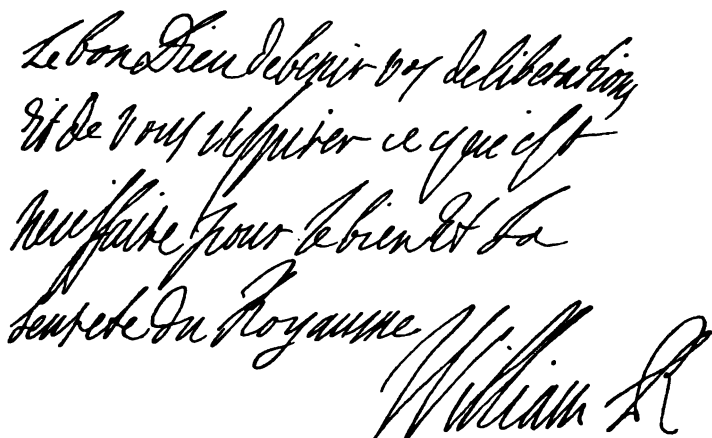 Le bon Dieu de benir vos deliberations
Et de vous inspirer ce qui est
necessaire pour le bien Et la
seurete du Royaume
William R